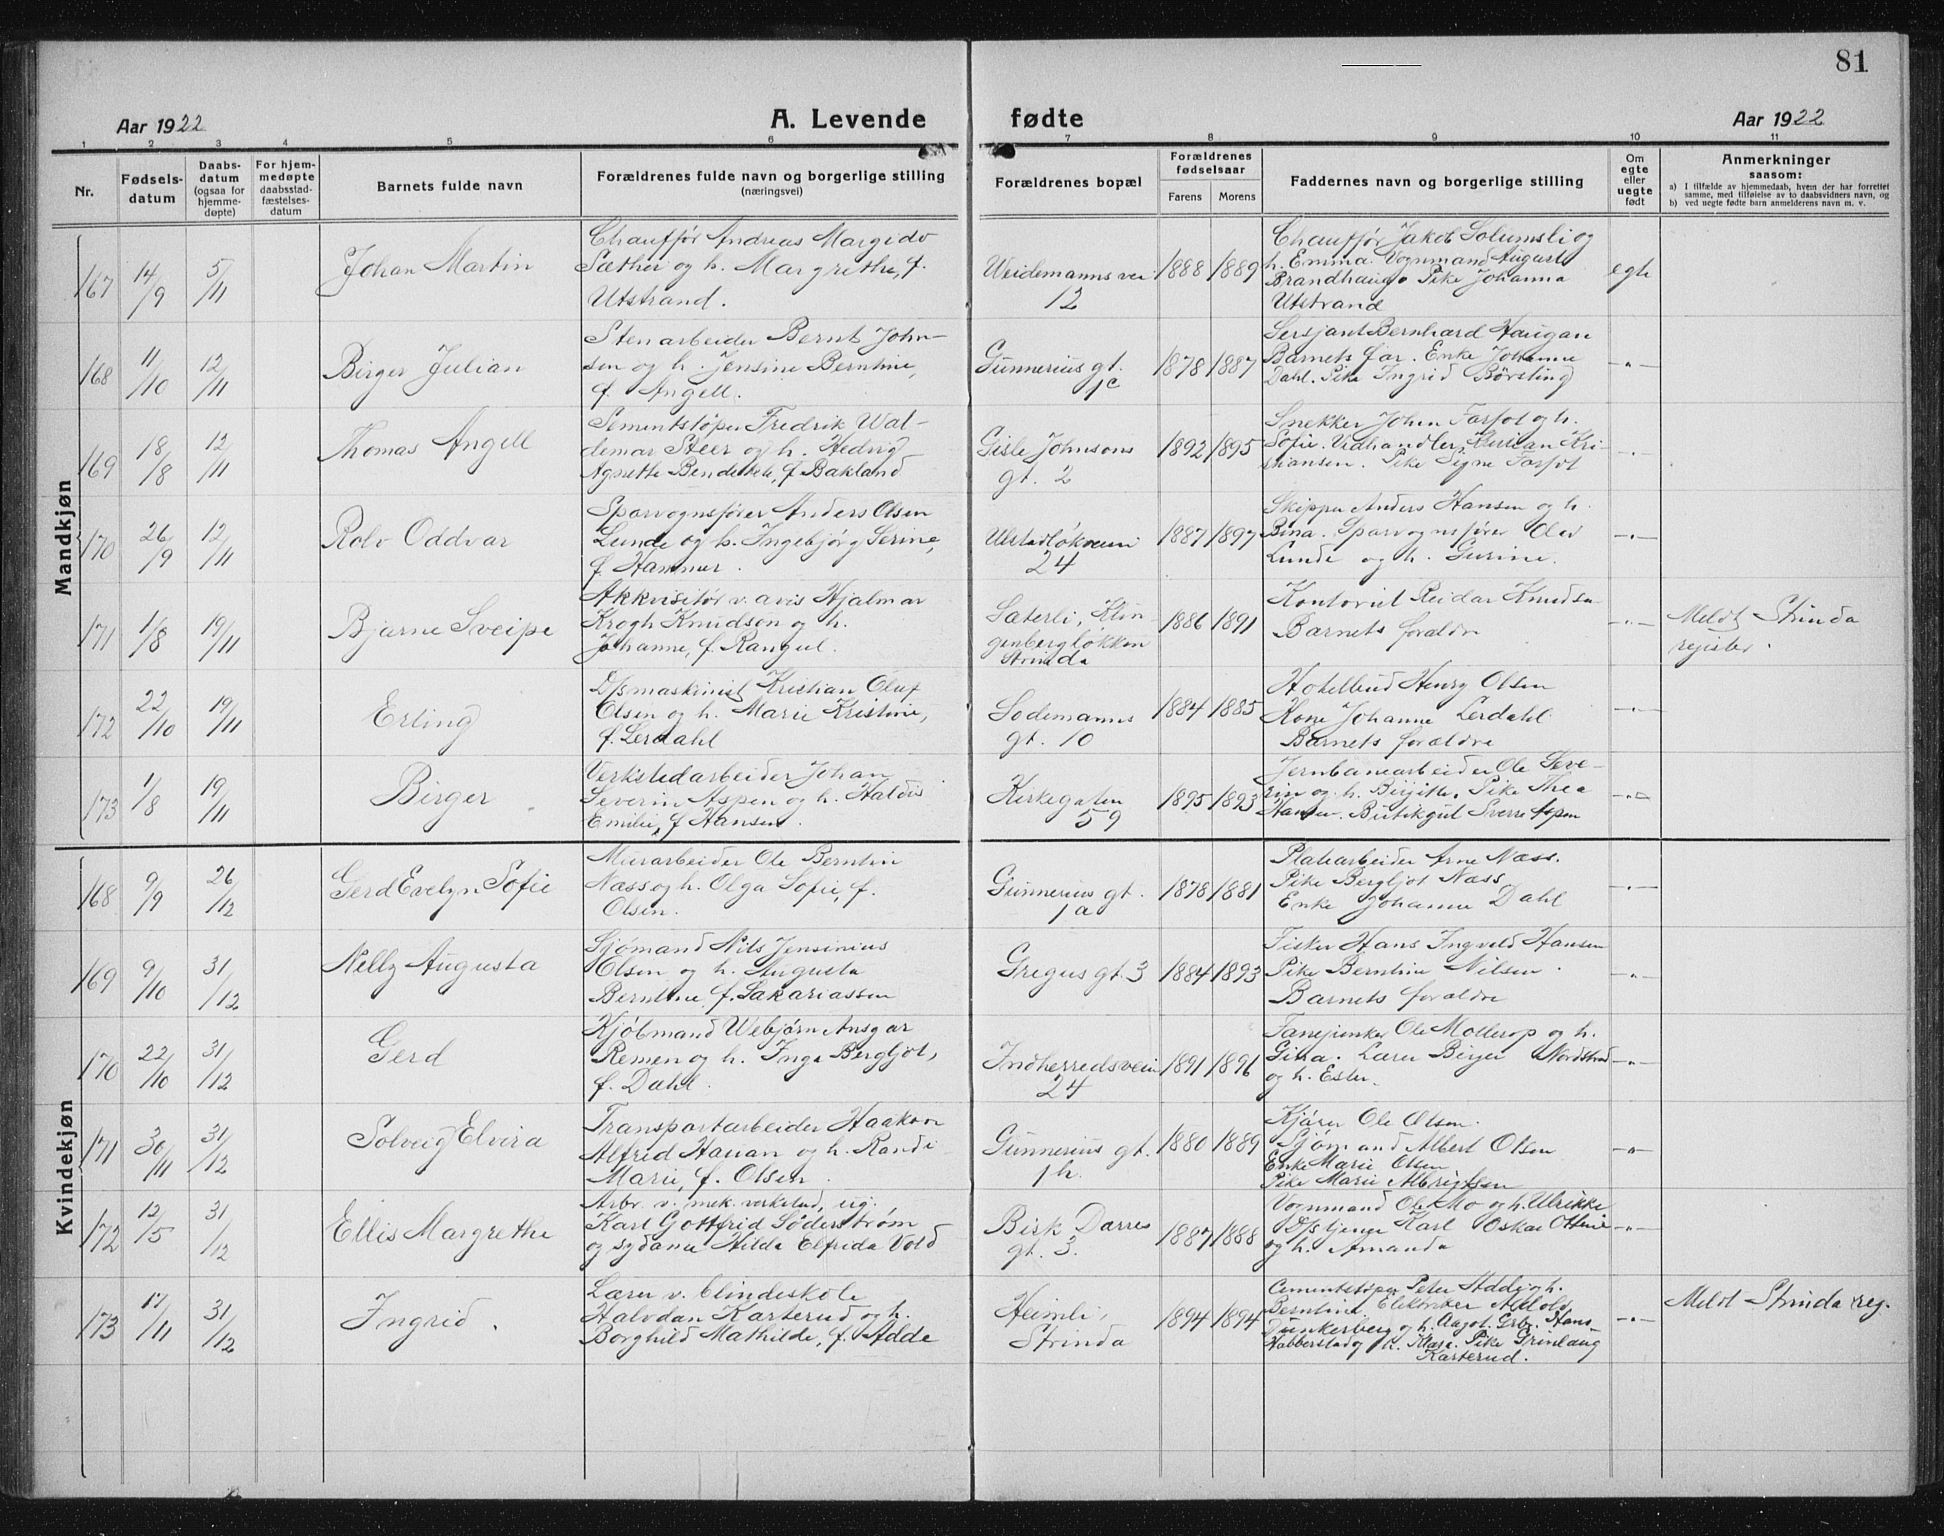 81
Aar 1922
A. Levende
fødte
Aar 1922
1 2 3 4 5 6 7 8 9 10 11
Nr.
Fødsels-
datum
Daabs-
datum
(ogsaa for
hjemme-
døpte)
For hjem-
medøpte
daabsstad-
fæstelses-
datum
Barnets fulde navn
Forældrenes fulde navn og borgerlige stilling
(næringsvei)
Forældrenes bopæl
Forældrenes
fødselsaar
Farens
Morens
Faddernes navn og borgerlige stilling
Om
egte
eller
uegte
født
Anmerkninger
saasom:
a) I tilfælde av hjemmedaab, hvem der har forrettet
samme, med tilføielse av to daabsvidners navn, og
b) ved uegte fødte barn anmelderens navn m. v.
Mandkjøn
167
14/9
5/11
Johan Martin
Chauffør Andreas Margido
Sæther og h. Margrethe, f.
Utstrand.
Weidemannsvei
12
1888
1889
Chauffør Jakob Solumsli og
h. Emma. Vognmand August
Brandhaug. Pike Johanna
Utstrand
egte
168
11/10
12/11
Birger Julian
Stenarbeider Bernt John-
sen og h. Jensine Berntine,
f. Angell.
Gunnerius gt.
1c
1878
1887
Sersjant Bernhard Haugan
Barnets far. Enke Johanne
Dahl. Pike Ingrid Børsting
-"-
169
18/8
12/11
Thomas Angell
Sementstøper Fredrik Wal-
demar Steer og h. Hedvig
Agnette f. Bakland
Gisle Johnsons
gt. 2
1892
1895
Snekker Johen Farfot og h.
Sofie. Vedhandler Kristian Kri-
stiansen. Pike Signe Farfot
-"-
170
26/9
12/11
Rolv Oddvar
Sporvognsfører Anders Olsen
Lunde og h. Ingebjørg Serine,
f. Hammer.
Ulstadløkveien
24
1887
1897
Skipper Anders Hansen og h.
Bina. Sporvognsfører Olav
Lunde og h. Gurine.
-"-
171
1/8
19/11
Bjarne Sveipe
Akkvisitør v. avis Hjalmar
Krogh Knudson og h.
Johanne, f. Rangul.
Sæterli, Klin-
genbergløkken
Strinda
1886
1891
Kontorist Reidar Knudsen
Barnets forældre
-"-
Meldt Strinda
register.
172
22/10
19/11
Erling
D/smaskinist Kristian Oluf
Olsen og h. Marie Kristine,
f. Lerdahl
Sodemanns
gt. 10
1884
1885
Hotelbud Henry Olsen
Kone Johanne Lerdahl
Barnets forældre
-"-
173
1/8
19/11
Birger
Verkstedarbeider Johan
Severin Aspen og h. Haldis
Emilie, f. Hansen.
Kirkegaten
59
1895
1893
Jernbanearbeider Ole Seve-
rin og h. Birgitte. Pike Thea
Hansen. Butikgut Sverre Aspen
-"-
Kvindekjøn
168
9/9
26/12
Gerd Evelyn Sofie
Murarbeider Ole Berntin
Næss og h. Olga Sofie, f.
Olsen.
Gunnerius gt.
1a
1878
1881
Platearbeider Arne Næss.
Pike Bergljot Næss
Enke Johanne Dahl
-"-
169
9/10
31/12
Nelly Augusta
Sjømand Nils Jensinius
Olsen og h. Augusta
Berntine, f. Sakariassen
Gregus gt. 3
1884
1893
Fisker Hans Ingvald Hansen
Pike Berntine Nilsen.
Barnets forældre
-"-
170
22/10
31/12
Gerd
Kjøbmand Webjørn Ansgar
Remen og h. Inga Bergljot,
f. Dahl.
Indherredsveien
24
1891
1896
Fanejunker Ole Mollerop og h.
Gina. Lærer Birger Nordstrand
og h. Ester.
-"-
171
30/11
31/12
Solveig Elvira
Transportarbeider Haakon
Alfred Hauan og h. Randi
Marie, f. Olsen
Gunnerius gt.
1h.
1880
1889
Kjører Ole Olsen.
Sjømand Albert Olsen
Enke Marie Olsen
Pike Marie Albrigtsen
-"-
172
12/5
31/12
Ellis Margrethe
Arb. v. mek. verksted, ug.
Karl Gottfrid Söderstrøm
og sydame Hilda Elfrida Vold
Birk Darres
gt. 3.
1887
1888
Vognmand Ole Mo og h. Ulrikke
Karl Oskar
og h. Amanda
-"-
173
17/11
31/12
Ingrid.
Lærer v. blindeskole
Halvdan Karterud og h.
Borghild Mathilde, f. Adde
Heimli,
Strinda
1894
1894
Cementstøper Peter Adde og h.
Berntine.
Dunkerberg og h. Aagot. Grbr. Hans
Habberstad og h. Klara. Pike
Karterud.
-"-
Meldt Strinda reg.